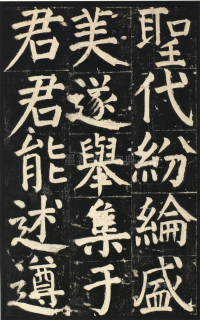 聖代紛綸盛
美遂舉集于
君君能述遵